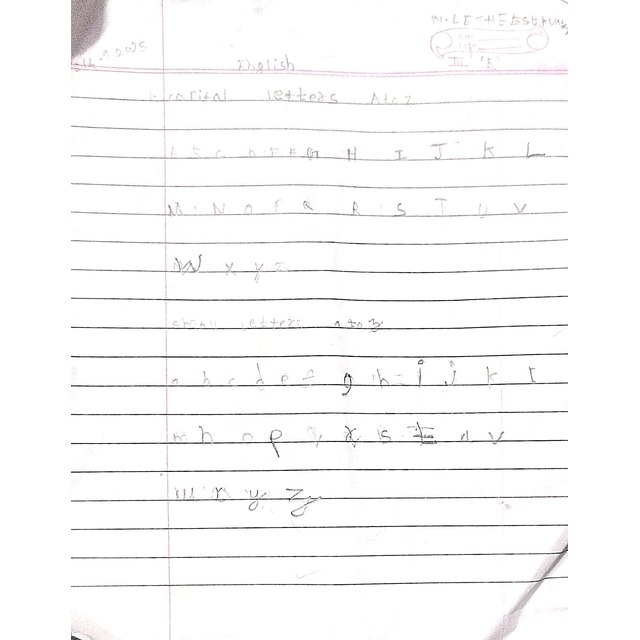 English
1. capital letters A to Z
A B C D E F G H I J K L
M N O P Q R S T U V
W X Y Z
small letters a to z
a b c d e f g h i j k l
m n o p q r s t u v
w x y z